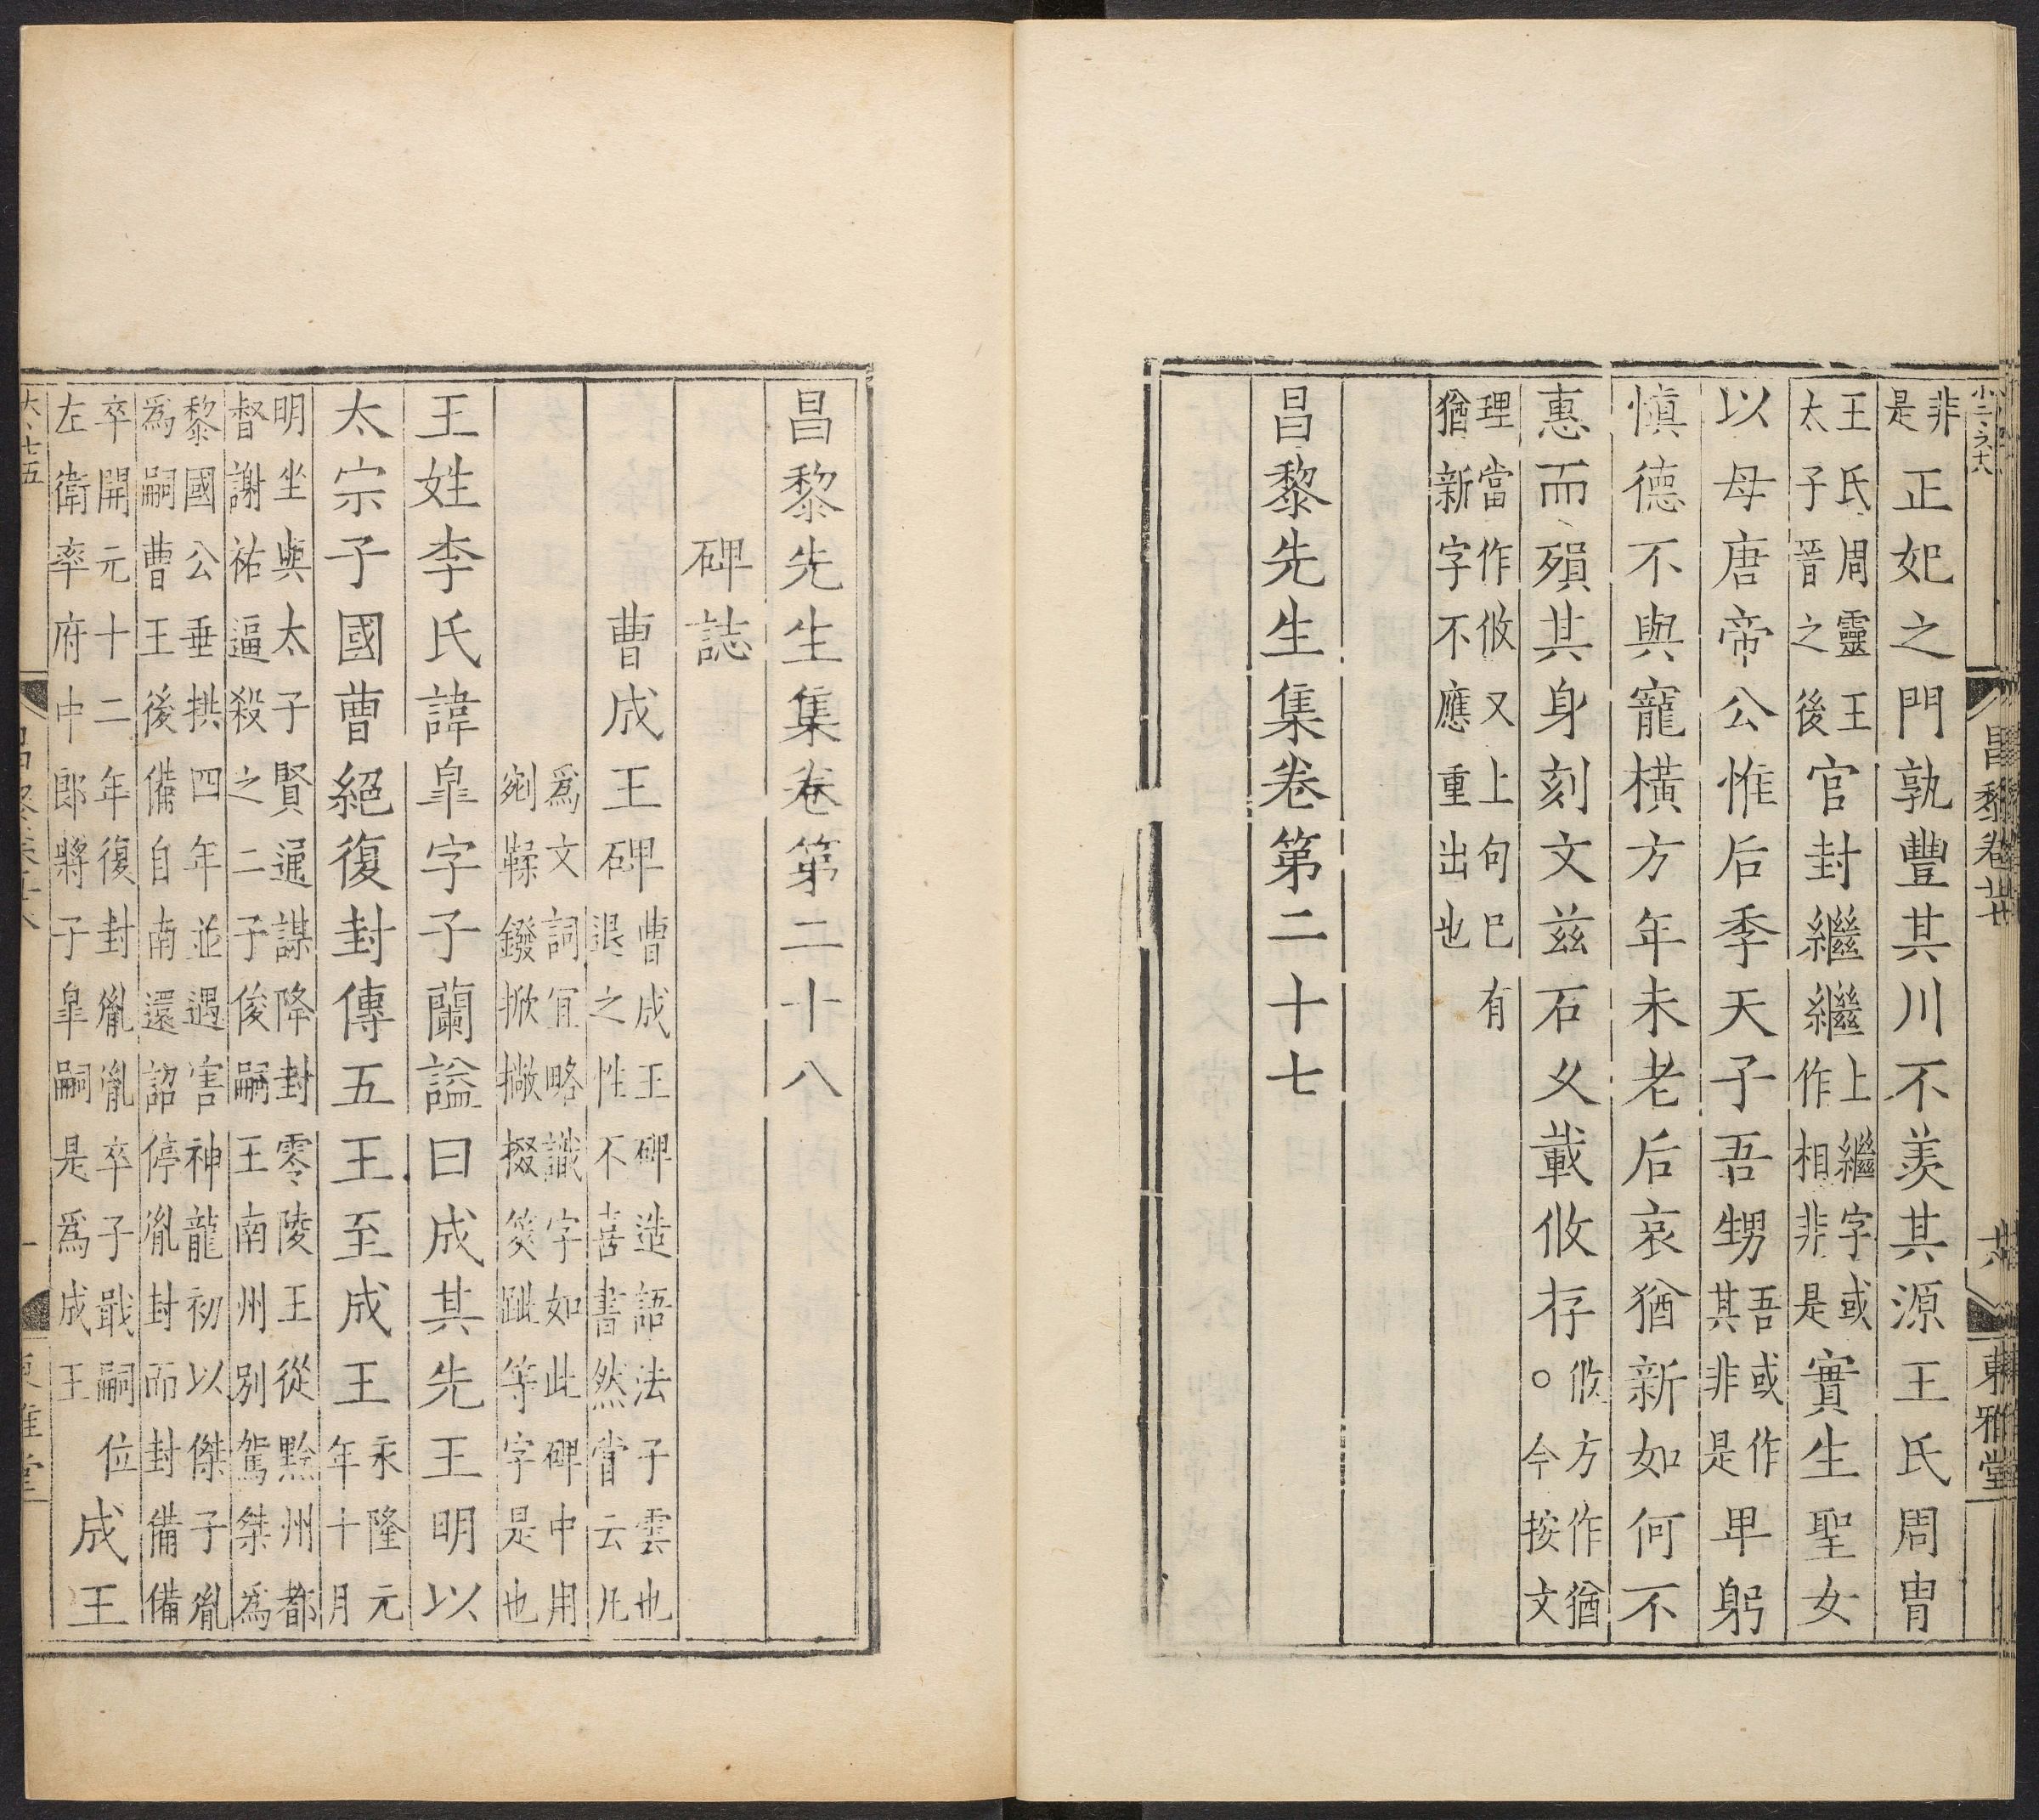 昌黎卷廿七 東雅堂
非是正妃之門孰豐其川不羨其源王氏周冑
王氏周靈王太子晉之後官封繼繼上繼字或作相非是實生聖女
以母唐帝公惟后季天子吾甥吾或作其非是卑躬
慎德不與寵橫方年未老后哀猶新如何不
惠而殞其身刻文茲石久載攸存攸方作猶○今按文
理當作攸又上句已有猶新字不應重出也
昌黎先生集卷第二十七
昌黎先生集卷第二十八
碑誌
曹成王碑曹成王碑造語法子雲也退之性不喜書然嘗云凡
爲文詞宜略識字如此碑中用剜鞣鏺掀撇掇筴跐等字是也
王姓李氏諱皐字子蘭謚曰成其先王明以
太宗子國曹絕復封傳五王至成王永隆元年十月
明坐與太子賢通謀降封零陵王從黔州都督謝祐逼殺之二子俊嗣王南州別駕桀爲
黎國公垂拱四年並遇害神龍初以傑子胤爲嗣曹王後備自南還詔停胤封而封備備
卒開元十二年復封胤胤卒子戢嗣位左衛率府中郎將子皐嗣是爲成王成王